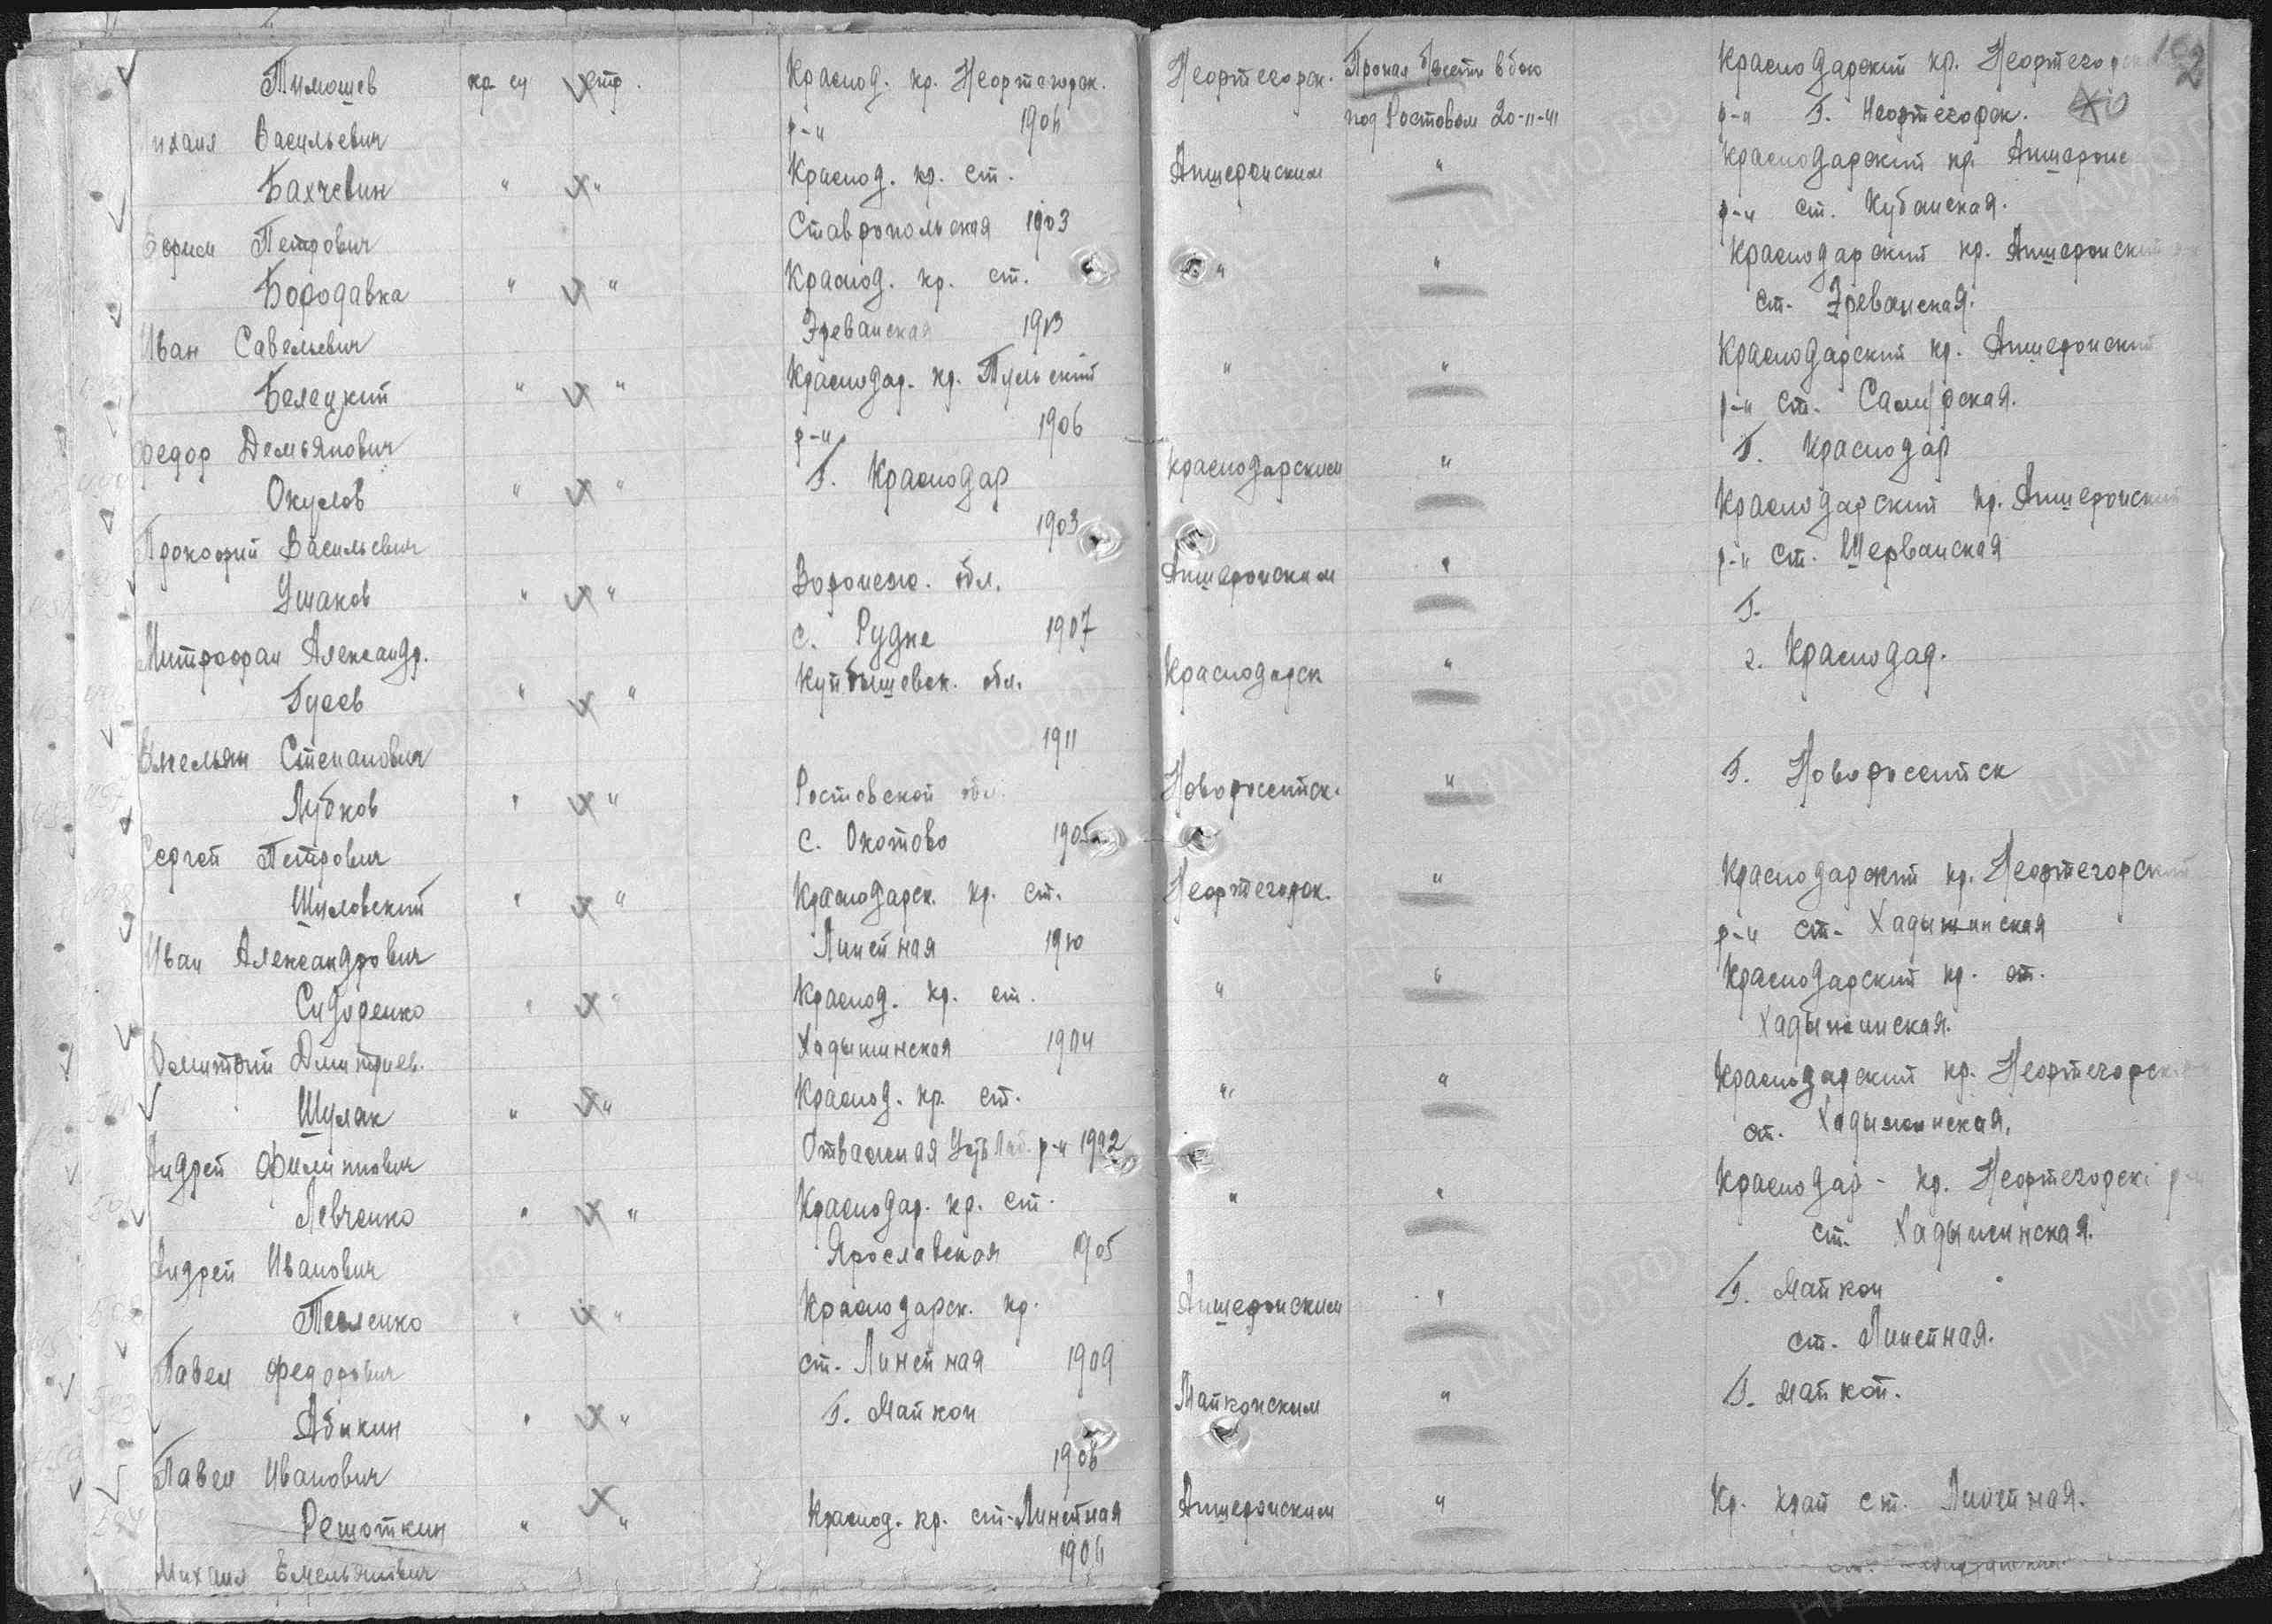 Тимошев кр-ец стр. Краснод. кр. Нефтегорск. Нефтегорск. Пропал без вести в бою Краснодарский кр. Нефтегорск
Михаил Васильевич р-н 1904 под Ростовом 20-11-41 р-н Г. Нефтегорск.
Бахчевин " " Краснод. кр. ст. Апшеронским " Краснодарский кр. Апшеронс
Ефрем Петрович Ставропольская 1903 р-н ст. Кубанская.
Бородавка " " Краснод. кр. ст. " " Краснодарский кр. Апшеронский
Иван Савельевич Эреванская 1913 ст. Эреванская.
Белецкий " " Краснодар. кр. Тульский " " Краснодарский кр. Апшеронский
Федор Демьянович р-н 1906 р-н ст. Самурская.
Окулов " " Г. Краснодар Краснодарским " Г. Краснодар
Прокофий Васильевич 1903 Краснодарский кр. Апшеронский
Ушаков " " Воронеж. обл. Апшеронским " р-н ст. Ширванская
Митрофан Александр. с. Рудне 1907 Г.
Гусев " " Куйбышевск. обл. Краснодарск " г. Краснодар.
Емельян Степанович 1911
Лубков " " Ростовской обл. Новороссийск. " Г. Новороссийск
Сергей Петрович с. Охотово 1905
Шуловский " " Краснодарск. кр. ст. Нефтегорск. " Краснодарский кр. Нефтегорский
Иван Александрович Линейная 1910 р-н ст. Хадыжинская
Сидоренко " " Краснод. кр. ст. " " Краснодарский кр. ст.
Дмитрий Дмитриев. Хадыжинская 1904 Хадыжинская.
Шуляк " " Краснод. кр. ст. " " Краснодарский кр. Нефтегорск
Андрей Филиппович Отважная Усть Лаб. р-н 1902 ст. Хадыжинская.
Левченко " " Краснодар. кр. ст. " " Краснодар- кр. Нефтегорск р-н
Андрей Иванович Ярославская 1905 ст. Хадыжинская.
Павленко " " Краснодарск. кр. Апшеронским " Г. Майкоп
Павел Федорович ст. Линейная 1909 ст. Линейная.
Абикин " " Г. Майкоп Майкопским " Г. Майкоп.
Павел Иванович 1906
Решоткин " " Краснод. кр. ст. Линейная Апшеронским " Кр. край ст. Линейная.
Михаил Емельянович 1904